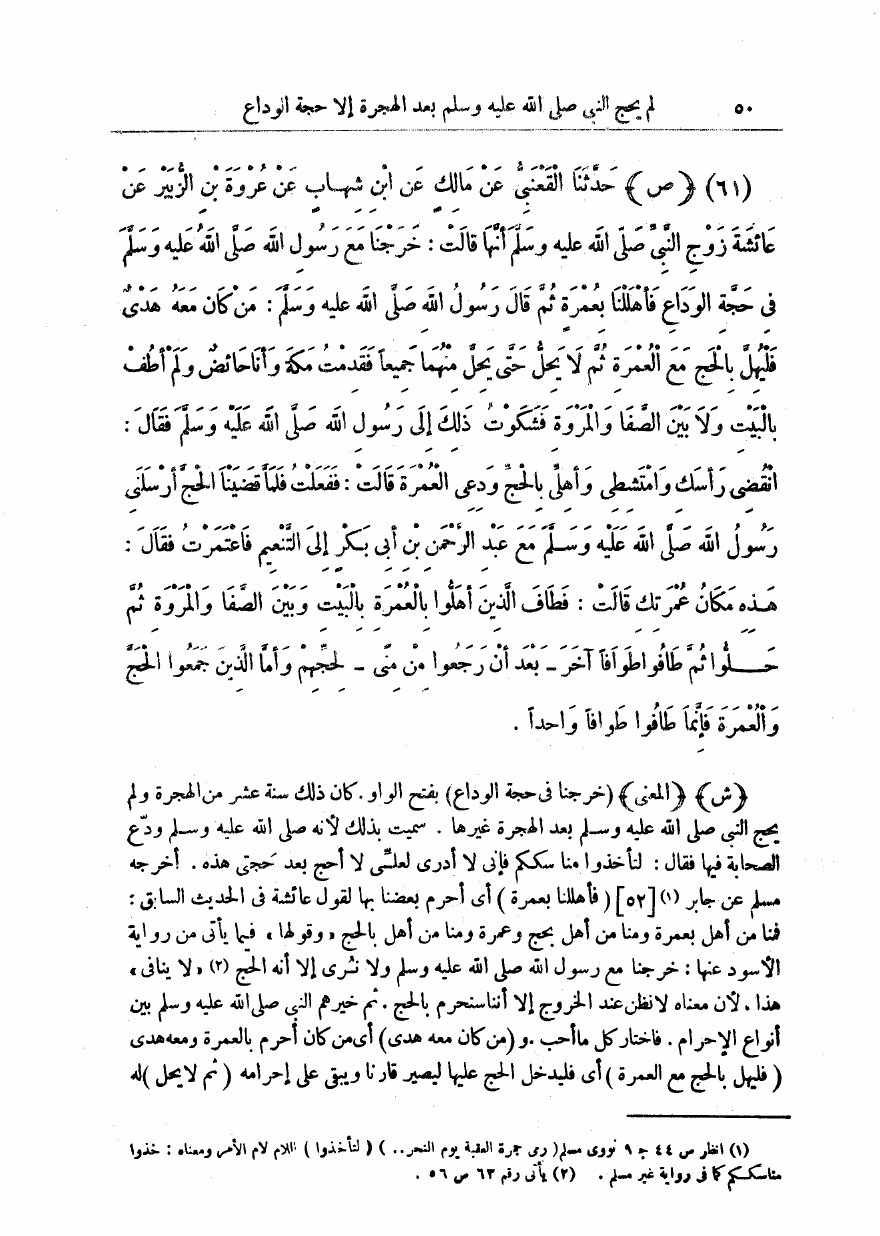 ٥٠ لم يحج النبي صلى الله عليه وسلم بعد الهجرة إلا حجة الوداع
(٦١) ﴿ص﴾ حَدَّثَنَا القَعْنَبِيُّ عَنْ مَالِكٍ عَنِ ابْنِ شِهَابٍ عَنْ عُرْوَةَ بْنِ الزُّبَيْرِ عَنْ
عَائِشَةَ زَوْجِ النَّبِيِّ صَلَّى الله عليه وسَلَّمَ أَنَّهَا قَالَتْ : خَرَجْنَا مَعَ رَسُولِ الله صَلَّى اللهُ عَلَيه وَسَلَّمَ
فى حَجَّةِ الوَدَاعِ فَأَهْلَلْنَا بِعُمْرَةٍ ثُمَّ قَالَ رَسُولُ الله صَلَّى الله عليه وَسَلَّمَ : مَنْ كَانَ مَعَهُ هَدْىٌ
فَلْيُهِلَّ بِالْحَجِ مَعَ الْعُمْرَةِ ثُمَّ لَا يَحِلُّ حَتَّى يَحِلَّ مِنْهُمَا جَمِيعاً فَقَدِمْتُ مَكَّةَ وَأَنَا حَائِضٌ وَلَمْ أَطُفْ
بِالْبَيْتِ وَلَا بَيْنَ الصَّفَا وَالْمَرْوَةِ فَشَكَوْتُ ذَلِكَ إِلَى رَسُولِ الله صَلَّى الله عَلَيْهِ وَسَلَّمَ فَقَالَ :
انْقُضِى رَأْسَكِ وَامْتَشِطِى وَأَهِلِّى بِالْحَجِّ وَدَعِى الْعُمْرَةَ قَالَتْ : فَفَعَلْتُ فَلَمَّا قَضَيْنَا الْحَجَّ أَرْسَلَنِى
رَسُولُ الله صَلَّى الله عَلَيْهِ وَسَلَّمَ مَعَ عَبْدِ الرَّحْمَنِ بْنِ أَبِى بَكْرٍ إِلَى التَّنْعِيمِ فَاعْتَمَرْتُ فَقَالَ :
هَذِهِ مَكَانُ عُمْرَتِكِ قَالَتْ : فَطَافَ الَّذِينَ أَهَلُّوا بِالْعُمْرَةِ بِالْبَيْتِ وَبَيْنَ الصَّفَا وَالْمَرْوَةِ ثُمَّ
حَلُّوا ثُمَّ طَافُوا طَوَافاً آخَرَ ــ بَعْدَ أَنْ رَجَعُوا مِنْ مِنًى ــ لِحَجِّهِمْ وَأَمَّا الَّذِينَ جَمَعُوا الْحَجَّ
وَالْعُمْرَةَ فَإِنَّمَا طَافُوا طَوافاً وَاحداً .
﴿ش﴾ ﴿المعنى﴾ (خرجنا فى حجة الوداع) بفتح الواو . كان ذلك سنة عشر من الهجرة ولم
يحج النبى صلى الله عليه وسلم بعد الهجرة غيرها . سميت بذلك لأنه صلى الله عليه وسلم ودّع
الصحابة فيها فقال : لتأخذوا مناسككم فإنى لا أدرى لعلّى لا أحج بعد حَجتى هذه . أخرجه
مسلم عن جابر (١) [٥٢] (فأهللنا بعمرة) أى أحرم بعضنا بها لقول عائشة فى الحديث السابق :
فمنا من أهل بعمرة ومنا من أهل بحج وعمرة ومنا من أهل بالحج «وقولها» فيما يأتى من رواية
الأسود عنها : خرجنا مع رسول الله صلى الله عليه وسلم ولا نُرى إلا أنه الحجّ (٢) «لا ينافى»
هذا . لأن معناه لانظن عند الخروج إلا أننا سنحرم بالحج . ثم خيرهم النبى صلى الله عليه وسلم بين
أنواع الإحرام . فاختار كل ما أحب . و (من كان معه هدى) أى من كان أحرم بالعمرة ومعه هدى
(فليهل بالحج مع العمرة) أى فليدخل الحج عليها ليصير قارنا ويبقى على إحرامه (ثم لا يحل) له
(١) انظر ص ٤٤ ج ٩ نووى مسلم (رمى جمرة العقبة يوم النحر ..) (لتأخذوا) اللام لام الأمر ومعناه : خذوا
مناسككم كما فى رواية غير مسلم . (٢) يأتى رقم ٦٣ ص ٥٦ .